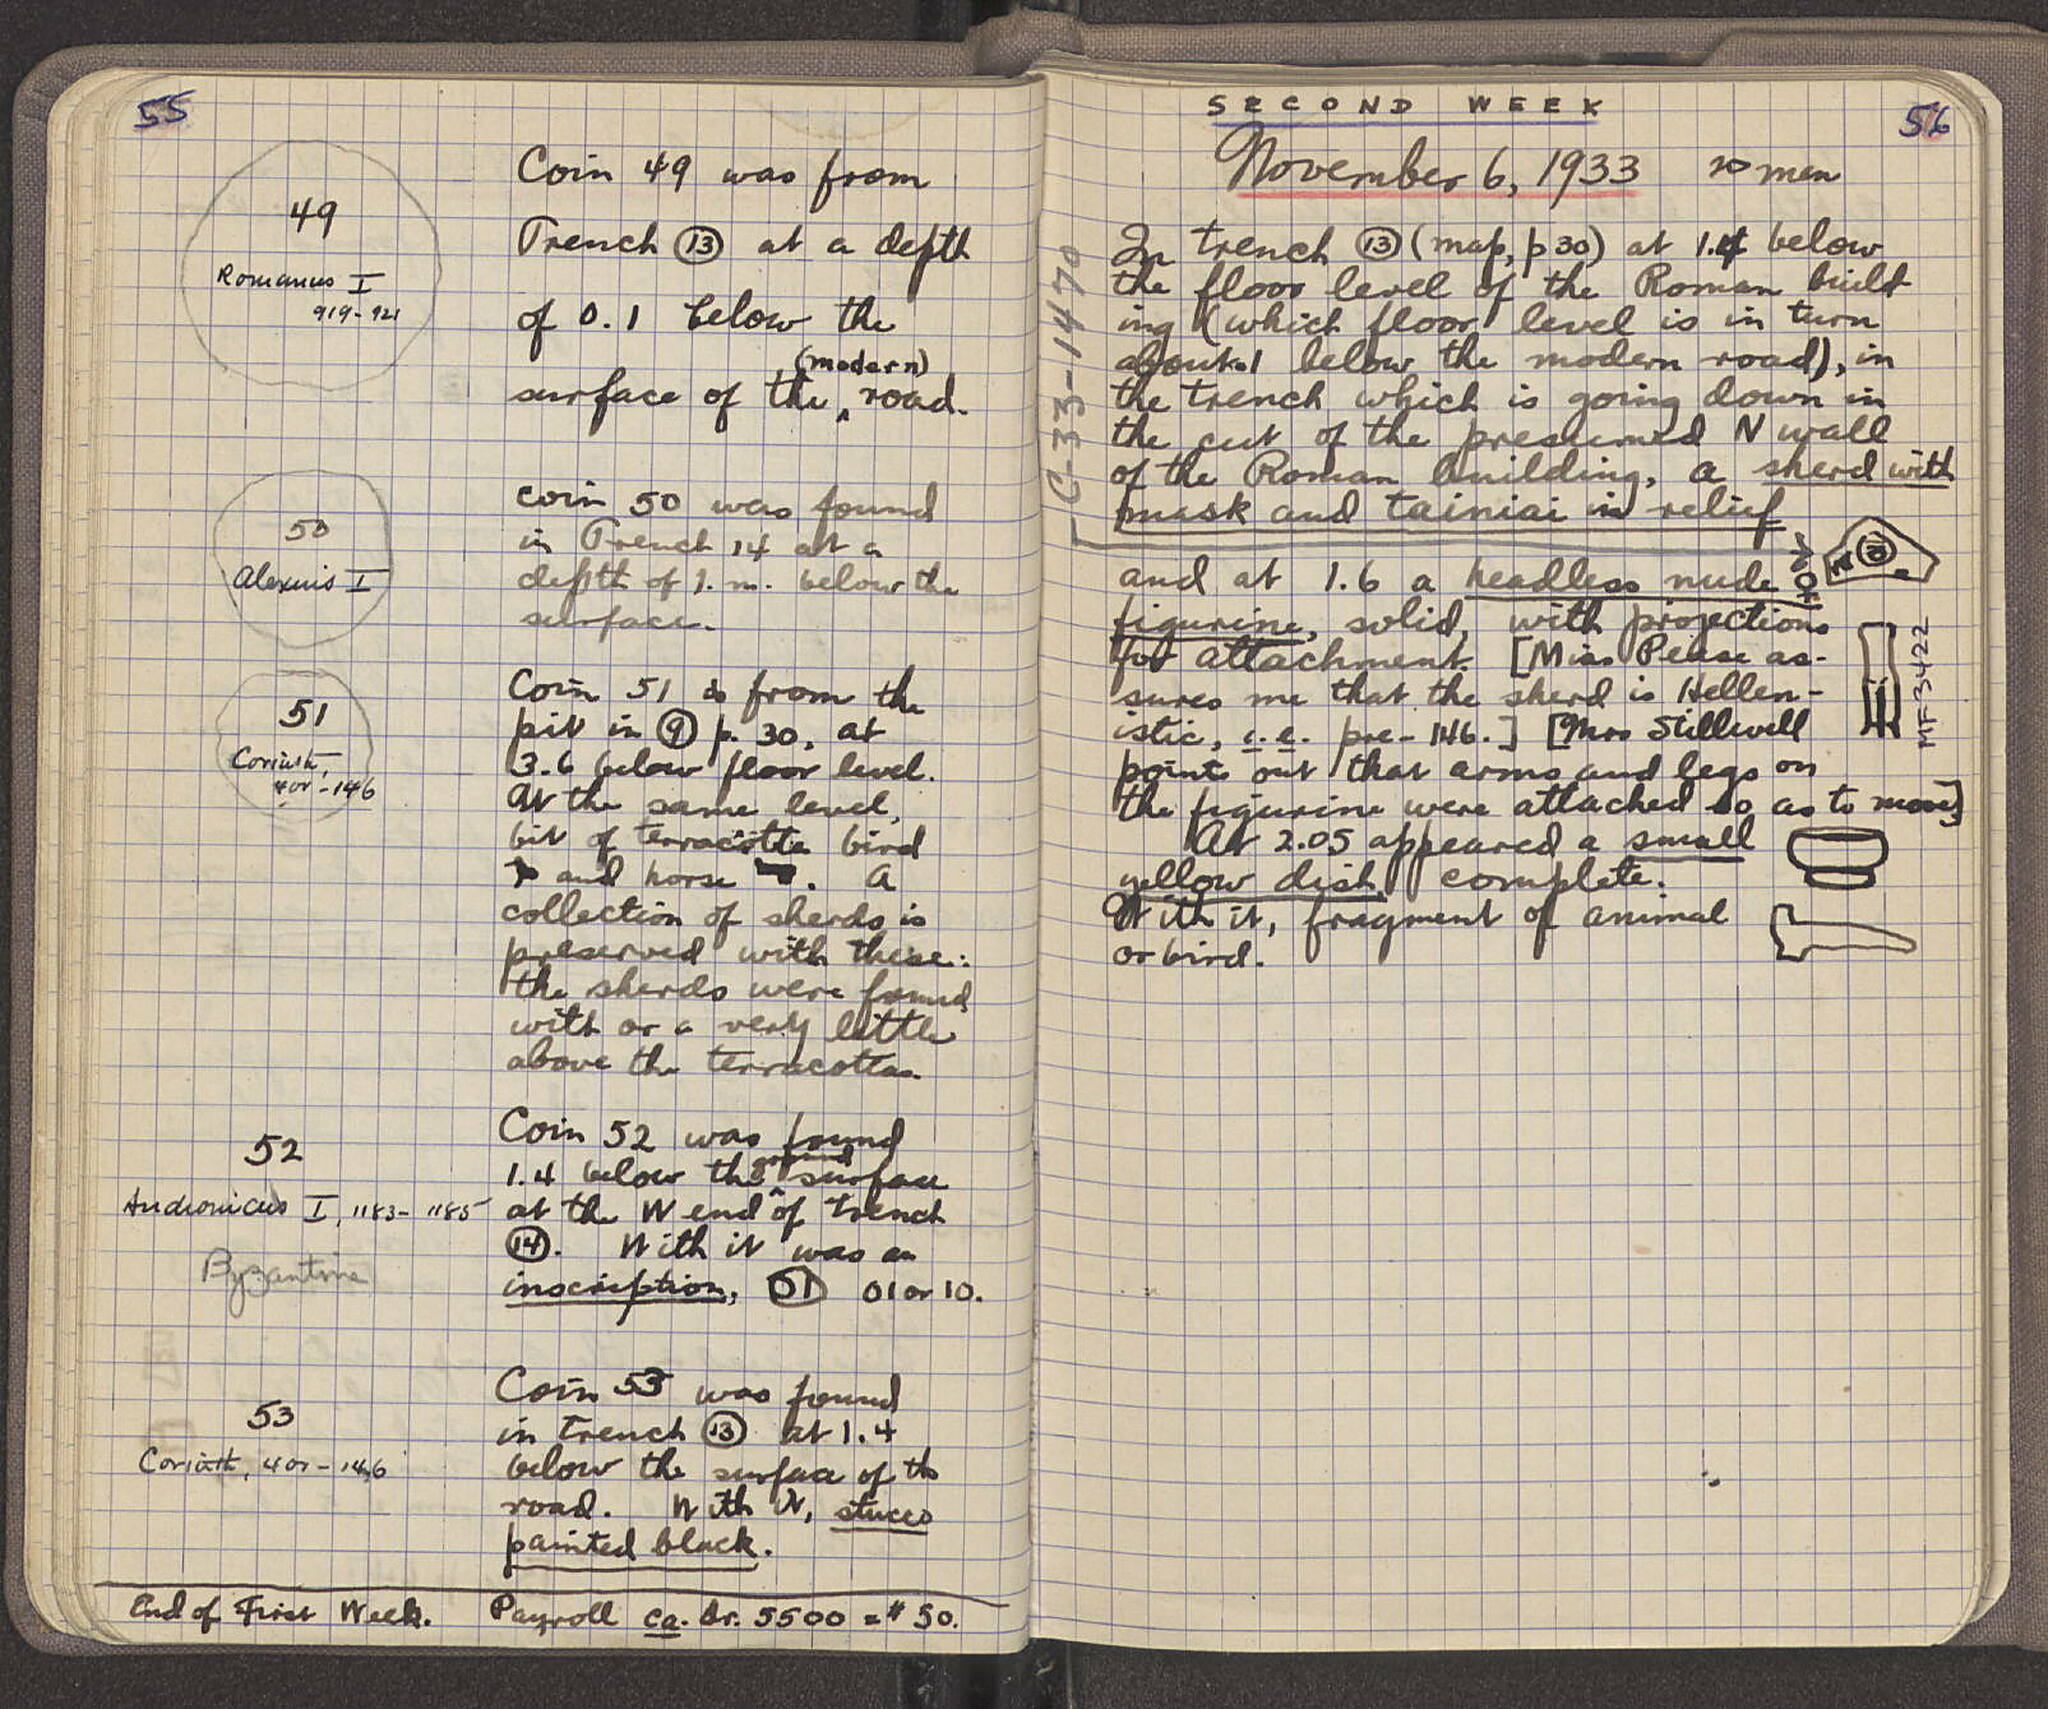 55
49
Romanus I
919-921
Coin 49 was from
Trench 13 at a depth
of 0.1 below the
(modern)
surface of the road.
50
Alexius I
coin 50 was found
in Trench 14 at a
depth of 1. m. below the
surface.
51
Corinth,
400-146
Coin 51 is from the
pit in 9 p. 30, at
3.6 below floor level.
At the same level,
bit of terracotta bird
and horse . A
collection of sherds is
preserved with these:
the sherds were found
with or a very little
above the terracottas.
52
Andronicus I, 1183-1185
Byzantine
Coin 52 was found
1.4 below the ground surface
at the W end of trench
14. With it was an
inscription, 01 01 or 10.
53
Corinth, 400-146
Coin 53 was found
in trench 13 at 1.4
below the surface of the
road. With it, stucco
painted black.
End of First Week. Payroll ca. dr. 5500 = $50.
SECOND WEEK
56
November 6, 1933 men
In trench 13 (map, p 30) at 1.4 below
the floor level of the Roman build
ing (which floor level is in turn
about .1 below the modern road), in
the trench which is going down in
the cut of the presumed N wall
of the Roman building, a sherd with
mask and tainiai in relief
C-33-1470
and at 1.6 a headless nude
figurine, solid, with projections
for attachment. [Miss Pease as-
sures me that the sherd is Hellen-
istic, i.e. pre-146.] [Mrs Stillwell
points out that arms and legs on
the figurine were attached so as to move]
MF-3422
At 2.05 appeared a small
yellow dish, complete.
With it, fragment of animal
or bird.